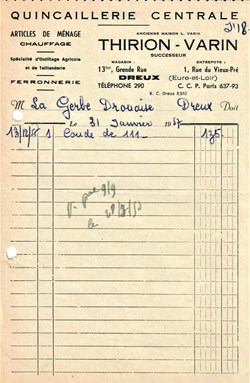 QUINCAILLERIE CENTRALE
ARTICLES DE MÉNAGE
CHAUFFAGE
Spécialité d'Outillage Agricole
et de Taillanderie
FERRONNERIE
ANCIENNE MAISON L. VARIN
THIRION - VARIN
SUCCESSEUR
MAGASIN :
13bis, Grande Rue
DREUX
TÉLÉPHONE 290
ENTREPOTS :
1, Rue du Vieux-Pré
(Eure-et-Loir)
C. C. P. Paris 637-93
R. C. Dreux
M La Gerbe Drouaise Dreux Doit
Le 31 Janvier
1 Coude de 111 135